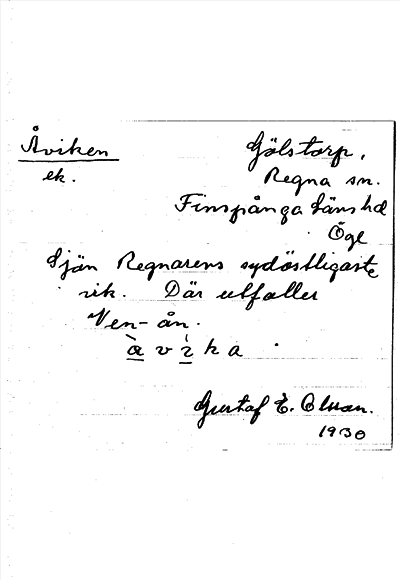 Åviken Gölstorp,
ek. Regna sn.
Finspånga läns hd
Ögl
Sjön Regnarens sydöstligaste
vik. Där utfaller
Ven-ån.
àvíka
Gustaf E. Olsson.
1930